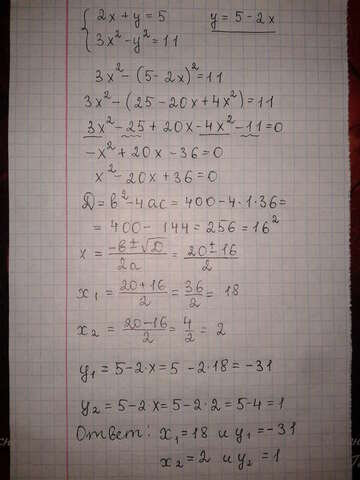 { 2x + y = 5    y = 5 - 2x
3x² - y² = 11
3x² - (5 - 2x)² = 11
3x² - (25 - 20x + 4x²) = 11
3x² - 25 + 20x - 4x² - 11 = 0
-x² + 20x - 36 = 0
x² - 20x + 36 = 0
D = b² - 4ac = 400 - 4·1·36 =
= 400 - 144 = 256 = 16²
x = (-b ± √D)/2a = (20 ± 16)/2
x₁ = (20 + 16)/2 = 36/2 = 18
x₂ = (20 - 16)/2 = 4/2 = 2
y₁ = 5 - 2·x = 5 - 2·18 = -31
y₂ = 5 - 2x = 5 - 2·2 = 5 - 4 = 1
Ответ: x₁ = 18 и y₁ = -31
x₂ = 2 и y₂ = 1